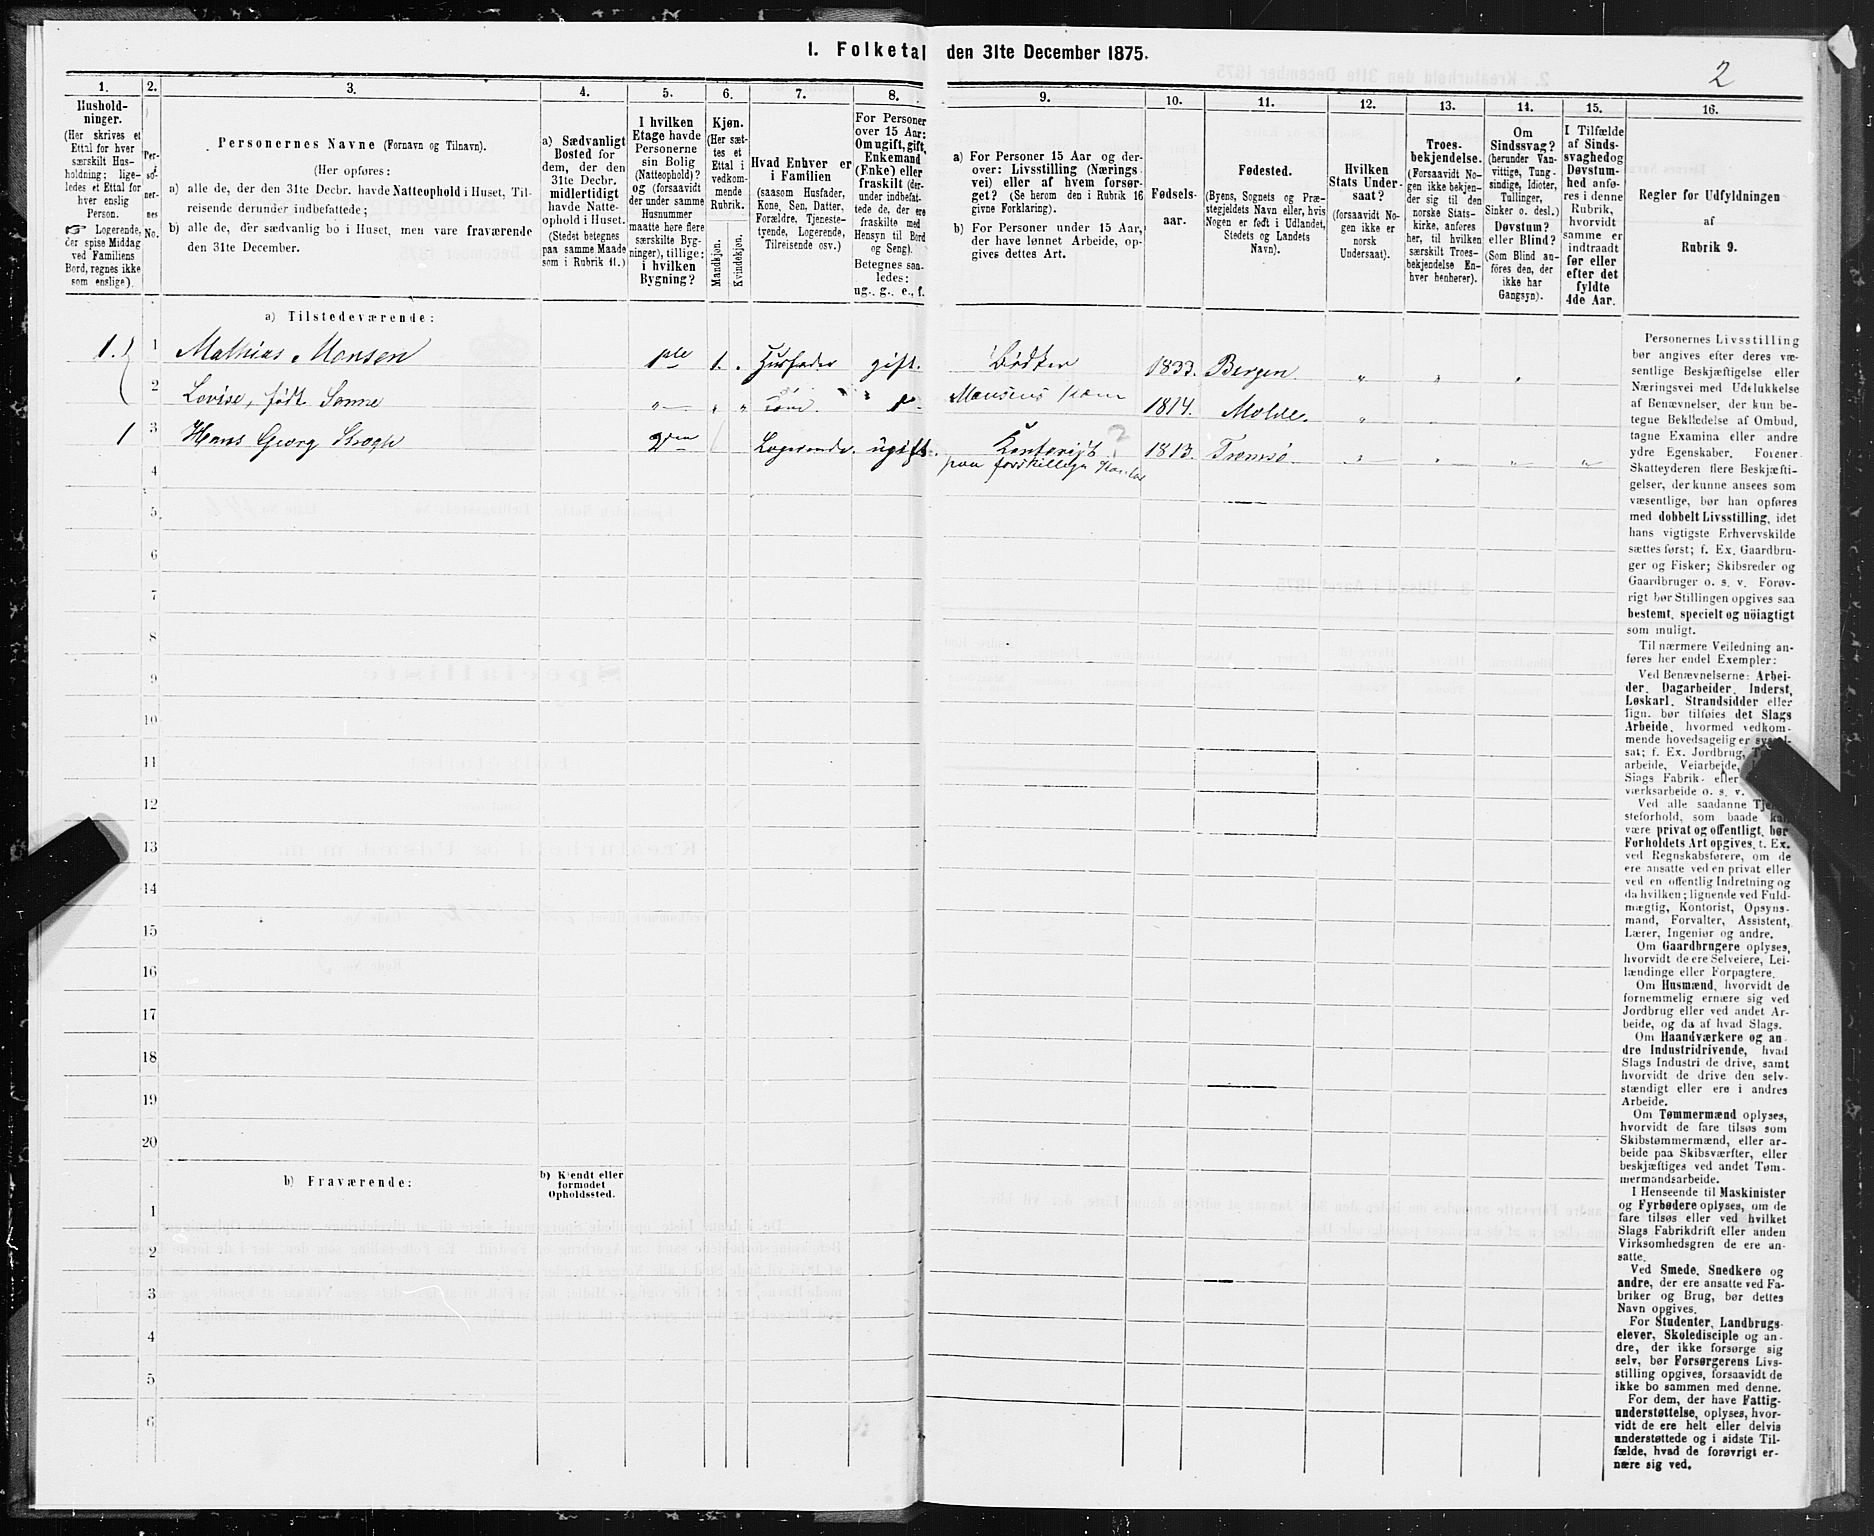 1. Folketal den 31te December 1875.
2
1.
Hushold-
ninger.
(Her skrives et
Ettal for hver
særskilt Hus-
holdning; lige-
ledes et Ettal for
hver enslig
Person.
☞ Logerende,
der spise Middag
ved Familiens
Bord, regnes ikke
som enslige).
2.
Per-
so-
ner-
nes
No.
3.
Personernes Navne (Fornavn og Tilnavn).
(Her opføres:
a) alle de, der den 31te Decbr. havde Natteophold i Huset, Til-
reisende derunder indbefattede;
b) alle de, der sædvanlig bo i Huset, men vare fraværende
den 31te December.
4.
a) Sædvanligt
Bosted for
dem, der den
31te Decbr.
midlertidigt
havde Natte-
ophold i Huset.
(Stedet betegnes
paa samme Maade
som i Rubrik 11.)
5.
I hvilken
Etage havde
Personerne
sin Bolig
(Natteophold)?
og (forsaavidt
der under samme
Husnummer
maatte høre flere
særskilte Byg-
ninger), tillige:
i hvilken
Bygning?
6.
Kjøn.
(Her sæt-
tes et
Ettal i
vedkom-
mende
Rubrik.
Mandkjøn.
Kvindekjøn.
7.
Hvad Enhver er
i Familien
(saasom Husfader,
Kone, Søn, Datter,
Forældre, Tjeneste-
tyende, Logerende,
Tilreisende osv.)
8.
For Personer
over 15 Aar:
Om ugift, gift,
Enkemand
(Enke) eller
fraskilt (der-
under indbefat-
tede de, der ere
fraskilte med
Hensyn til Bord
og Seng).
Betegnes saa-
ledes:
ug., g., e., f.
9.
a) For Personer 15 Aar og der-
over: Livsstilling (Nærings-
vei) eller af hvem forsør-
get? (Se herom den i Rubrik 16
givne Forklaring).
b) For Personer under 15 Aar,
der have lønnet Arbeide, op-
gives dettes Art.
10.
Fødsels-
aar.
11.
Fødested.
(Byens, Sognets og Præ-
stegjeldets Navn eller, hvis
Nogen er født i Udlandet,
Stedets og Landets
Navn).
12.
Hvilken
Stats Under-
saat?
(forsaavidt No-
gen ikke er
norsk
Undersaat).
13.
Troes-
bekjendelse.
(Forsaavidt No-
gen ikke bekjen-
der sig til den
norske Stats-
kirke, anføres
her, til hvilken
særskilt Troes-
bekjendelse En-
hver henhører).
14.
Om
Sindssvag?
(herunder Van-
vittige, Tung-
sindige, Idioter,
Tullinger,
Sinker o. desl.)
Døvstum?
eller Blind?
(Som Blind an-
føres den, der
ikke har
Gangsyn).
15.
I Tilfælde
af Sinds-
svaghed og
Døvstum-
hed anfø-
res i denne
Rubrik,
hvorvidt
samme er
indtraadt
før eller
efter det
fyldte
4de Aar.
16.
Regler for Udfyldningen
af
Rubrik 9.
a) Tilstedeværende:
1. 1 Mathias Monsen 1ste 1. Husfader gift. Bødker 1833. Bergen " " "
2 Lovise, født Sanne " " " Kone. Monsens Kone 1814. Molde. "
1 3 Hans Georg 2den Logerende. ugift. Kontorist ?
paa forskellige 1813. Tromsø " " " "
4
5
6
7
8
9
10
11
12
13
14
15
16
17
18
19
20
b) Fraværende:
b) Kjendt eller
formodet
Opholdssted.
1
2
3
4
5
6
Personernes Livsstilling
bør angives efter deres væ-
sentlige Beskjæftigelse eller
Næringsvei med Udelukkelse
af Benævnelser, der kun be-
tegne Beklædelse af Ombud,
tagne Examina eller andre
ydre Egenskaber. Forener
Skatteyderen flere Beskjæfti-
gelser, der kunne ansees som
væsentlige, bør han opføres
med dobbelt Livsstilling, idet
hans vigtigste Erhvervskilde
sættes først; f. Ex. Gaardbru-
ger og Fisker; Skibsreder og
Gaardbruger o. s. v. Forøv-
rigt bør Stillingen opgives saa
bestemt, specielt og nøiagtigt
som muligt.
Til nærmere Veiledning an-
føres her endel Exempler:
Ved Benævnelserne: Arbei-
der, Dagarbeider, Inderst,
Løskarl, Strandsidder eller
lign. bør tilføies det Slags
Arbeide, hvormed vedkom-
mende hovedsagelig er syssel-
sat; f. Ex. Jordbrug,
arbeide, Veiarbeide,
Slags Fabrik- eller
værksarbeide o. s. v.
Ved alle saadanne Tjene-
steforhold, som baade kan
være privat og offentligt, bør
Forholdets Art opgives, f. Ex.
ved Regnskabsførere, om de
ere ansatte ved en privat eller
ved en offentlig Indretning og
da hvilken; lignende ved Fuld-
mægtig, Kontorist, Opsyns-
mand, Forvalter, Assistent,
Lærer, Ingeniør og andre.
Om Gaardbrugere oplyses,
hvorvidt de ere Selveiere, Lei-
lændinge eller Forpagtere.
Om Husmænd, hvorvidt de
fornemmelig ernære sig ved
Jordbrug eller ved andet Ar-
beide, og da af hvad Slags.
Om Haandværkere og an-
dre Industridrivende, hvad
Slags Industri de drive, samt
hvorvidt de drive den selv-
stændigt eller ere i andres
Arbeide.
Om Tømmermænd oplyses,
hvorvidt de fare tilsøs som
Skibstømmermænd, eller ar-
beide paa Skibsværfter, eller
beskjæftiges ved andet Tøm-
mermandsarbeide.
I Henseende til Maskinister
og Fyrbødere oplyses, om de
fare tilsøs eller ved hvilket
Slags Fabrikdrift eller anden
Virksomhedsgren de ere an-
satte.
Ved Smede, Snedkere og
andre, der ere ansatte ved Fa-
briker og Brug, bør dettes
Navn opgives.
For Studenter, Landbrugs-
elever, Skoledisciple og an-
dre, der ikke forsørge sig
selv, bør Forsørgerens Livs-
stilling opgives, forsaavidt de
ikke bo sammen med denne.
For dem, der have Fattig-
understøttelse, oplyses, hvor-
vidt de ere helt eller delvis
understøttede og i sidste Til-
fælde, hvad de forøvrigt er-
nære sig ved.